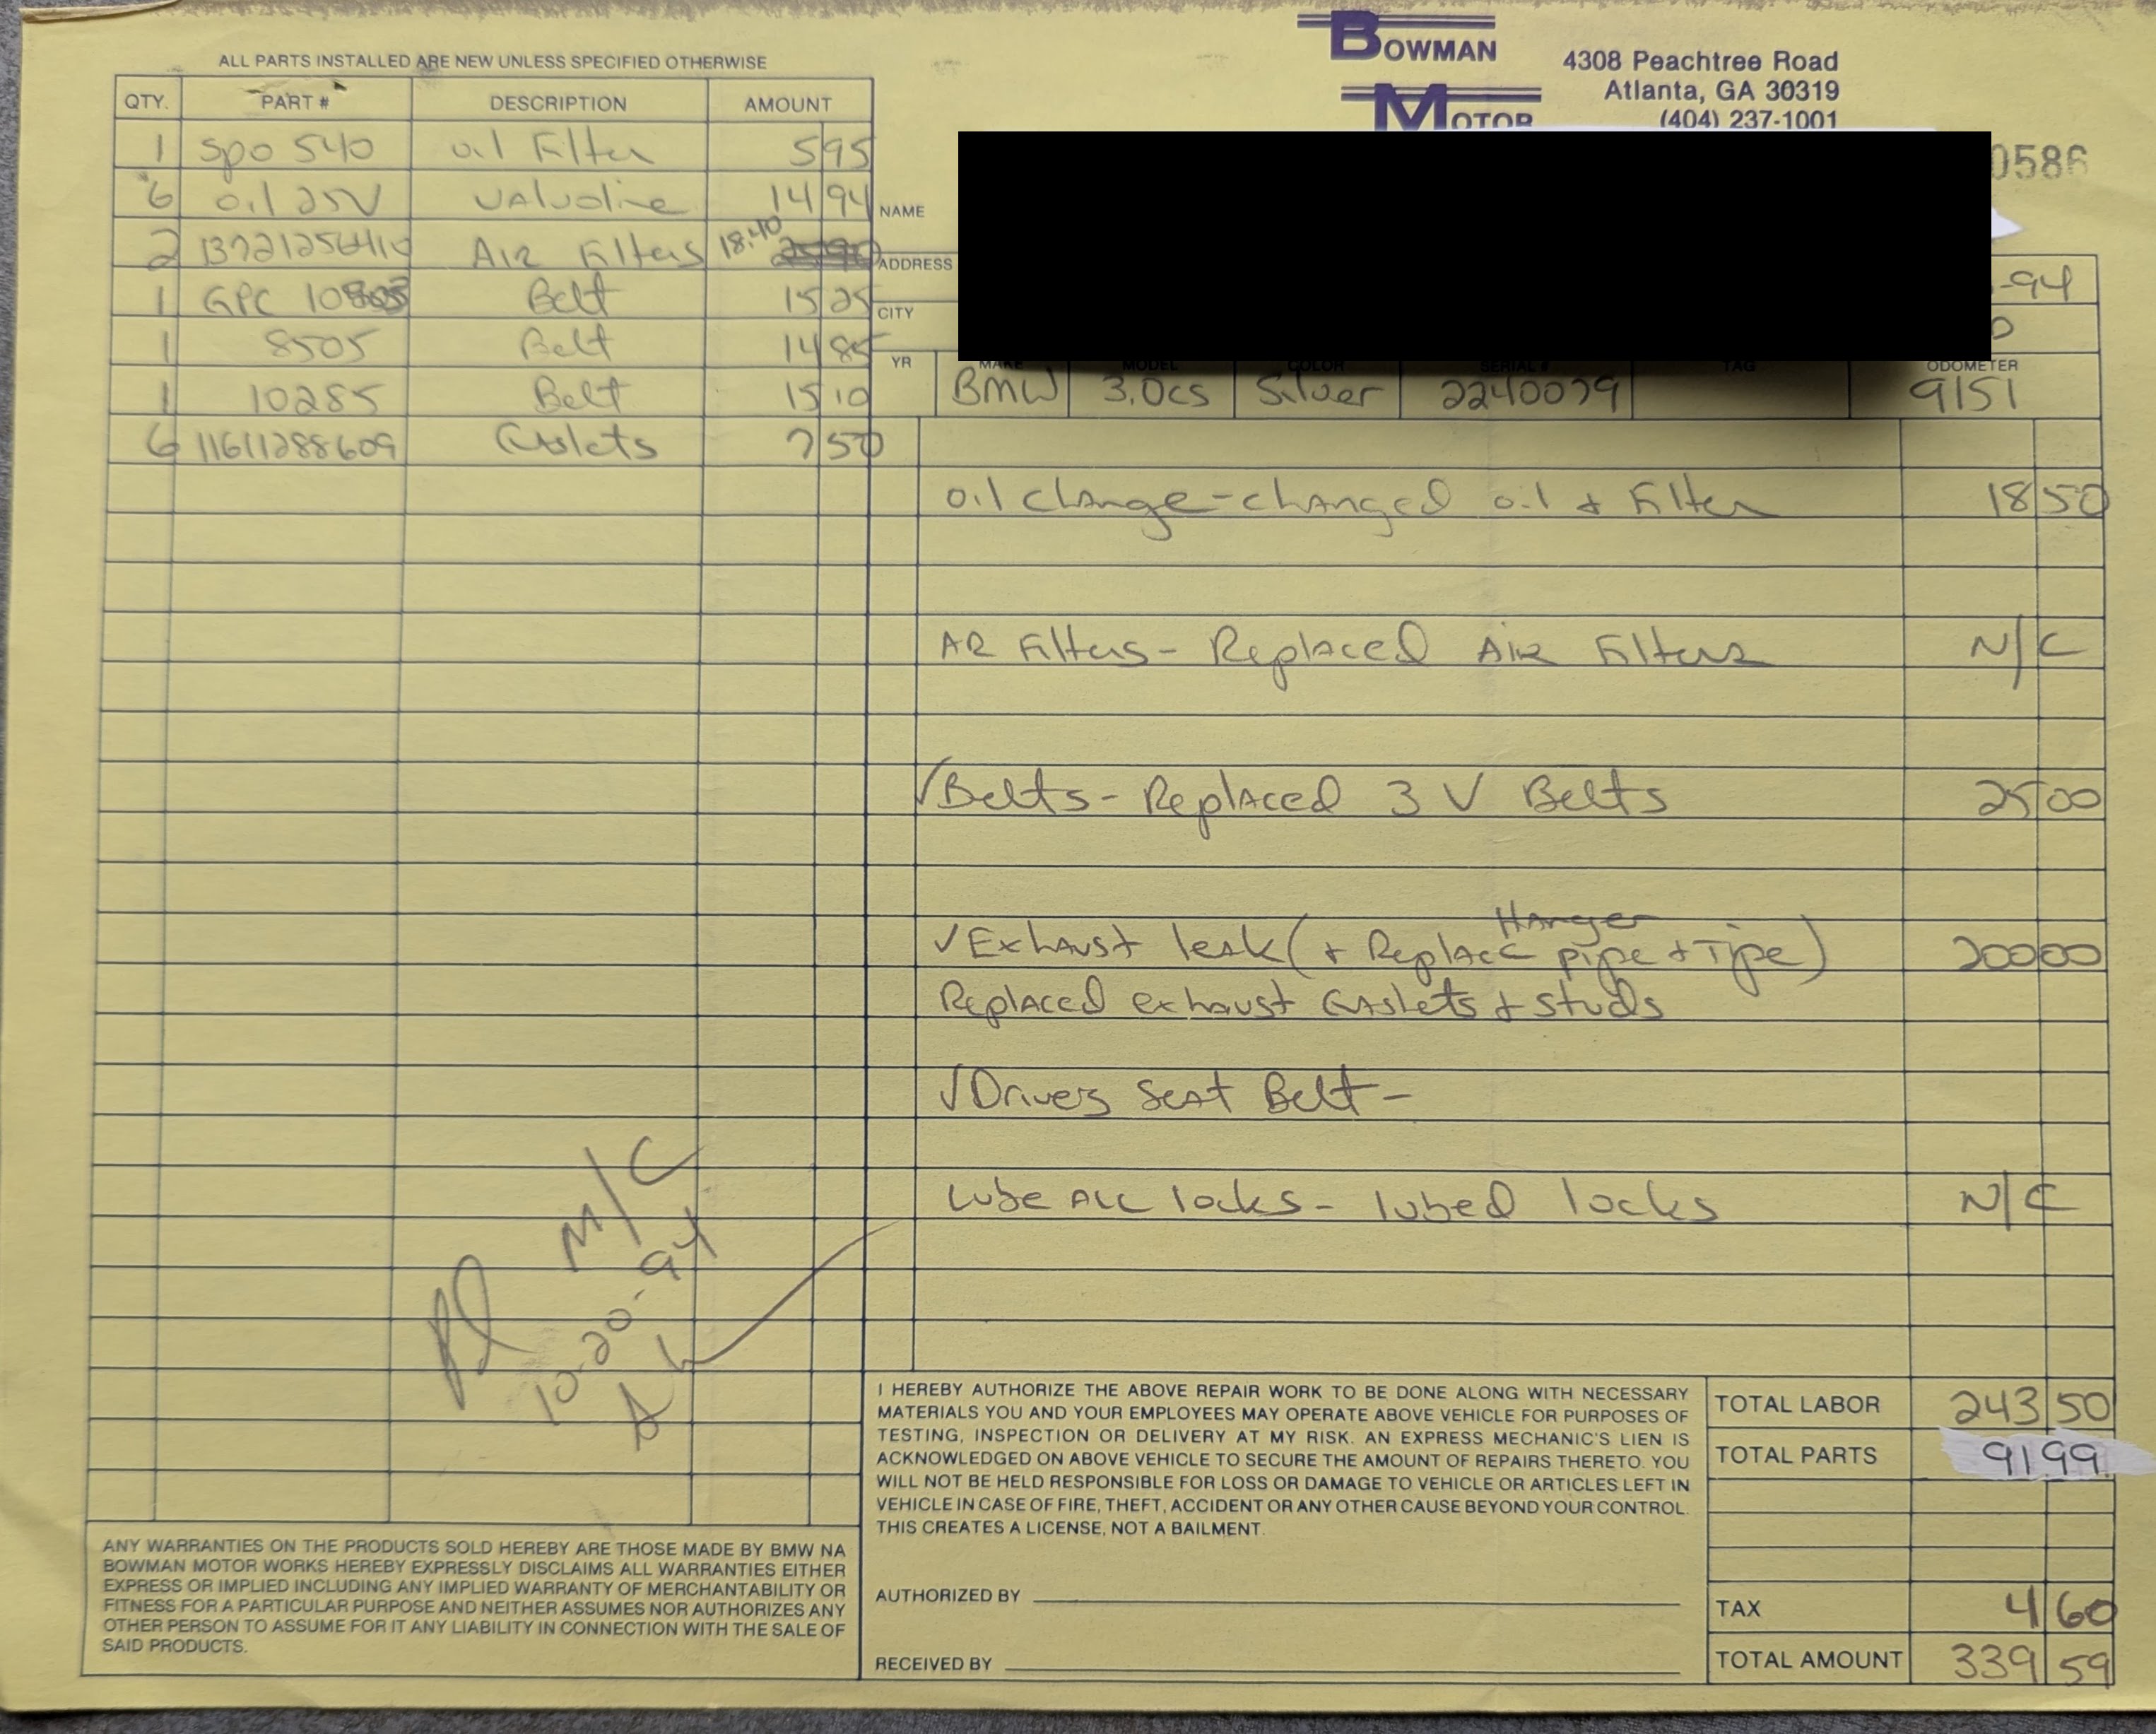 BOWMAN
MOTOR
4308 Peachtree Road
Atlanta, GA 30319
(404) 237-1001
0586
ALL PARTS INSTALLED ARE NEW UNLESS SPECIFIED OTHERWISE
QTY. PART # DESCRIPTION AMOUNT
1 Spo 540 oil Filter 5 95
6 oil 25V Valvoline 14 94
2 13721256410 Air Filters 18.40
1 GPC Belt 15 25
1 8505 Belt 14 85
1 10285 Belt 15 10
6 11611288609 Gaskets 7 50
NAME
ADDRESS
-94
CITY
YR MAKE MODEL COLOR SERIAL # TAG ODOMETER
BMW 3.0cs Silver 2240079 9151
oil change - changed oil & Filter 18 50
AR Filters - Replaced Air Filters N/C
√ Belts - Replaced 3 V Belts 25 00
Hanger
√ Exhaust leak (+ Replace pipe + Tipe) 200 00
Replaced exhaust Gaskets & Studs
√ Drivers Seat Belt -
Lube ALL locks - lubed locks N/C
Pd M/C
10-20-94
I HEREBY AUTHORIZE THE ABOVE REPAIR WORK TO BE DONE ALONG WITH NECESSARY
MATERIALS YOU AND YOUR EMPLOYEES MAY OPERATE ABOVE VEHICLE FOR PURPOSES OF
TESTING, INSPECTION OR DELIVERY AT MY RISK. AN EXPRESS MECHANIC'S LIEN IS
ACKNOWLEDGED ON ABOVE VEHICLE TO SECURE THE AMOUNT OF REPAIRS THERETO. YOU
WILL NOT BE HELD RESPONSIBLE FOR LOSS OR DAMAGE TO VEHICLE OR ARTICLES LEFT IN
VEHICLE IN CASE OF FIRE, THEFT, ACCIDENT OR ANY OTHER CAUSE BEYOND YOUR CONTROL.
THIS CREATES A LICENSE, NOT A BAILMENT.
AUTHORIZED BY
RECEIVED BY
TOTAL LABOR 243 50
TOTAL PARTS 91 99
TAX 4 60
TOTAL AMOUNT 339 59
ANY WARRANTIES ON THE PRODUCTS SOLD HEREBY ARE THOSE MADE BY BMW NA
BOWMAN MOTOR WORKS HEREBY EXPRESSLY DISCLAIMS ALL WARRANTIES EITHER
EXPRESS OR IMPLIED INCLUDING ANY IMPLIED WARRANTY OF MERCHANTABILITY OR
FITNESS FOR A PARTICULAR PURPOSE AND NEITHER ASSUMES NOR AUTHORIZES ANY
OTHER PERSON TO ASSUME FOR IT ANY LIABILITY IN CONNECTION WITH THE SALE OF
SAID PRODUCTS.